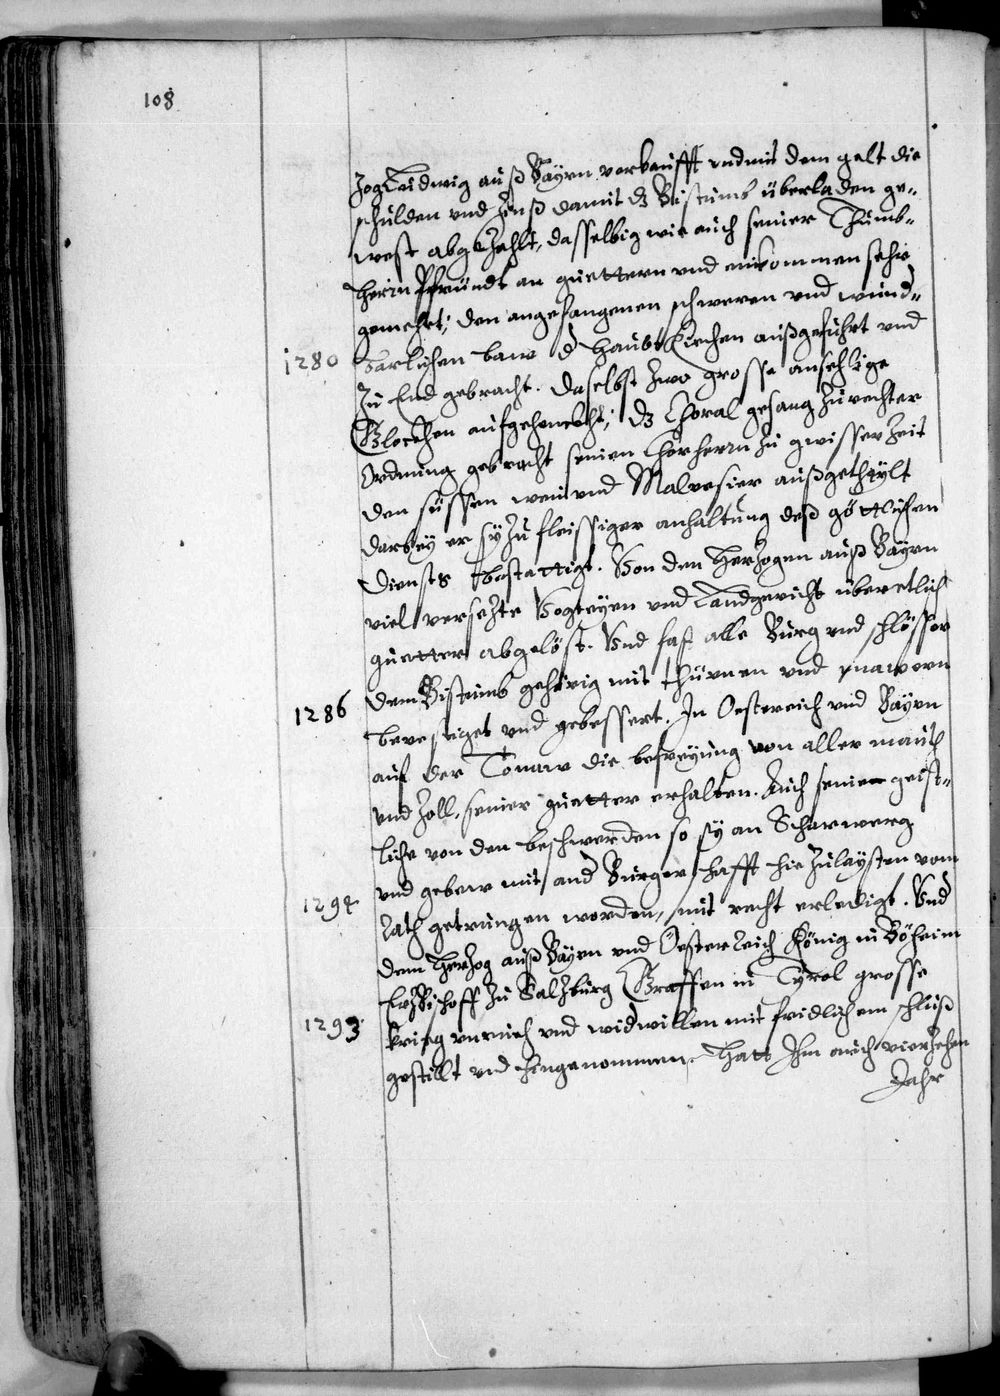 108
zog Ludwig auß Bayrn verkaufft und mit dem gelt die
schulden und Zinß damit dz Bistumb überladen ge-
west abgezahlt, dasselbig wie auch seiner Thumb-
herrn Pfründt an guettern und einkommen sehr
gemehrt; den angefangenen schweren und wund-
1280 barlichen baw d Haubt Kirchen außgeführt und
zu End gebracht. Daselbst zwo grosse ansehlige
Glocken aufgehenckht; dz Choral gesang zu rechter
Ordnung gebracht seinen Chorherrn zu gwisser Zeit
den süssen wein und Malvasier außgetheylt
darbey er sy zu fleissiger anhaltung deß göttlichen
Diensts bestattigt. Von den Herzogen auß Bayrn
viel versezte Vogteyen und Landgericht über etlich
guetter abgelöst. Und fast alle Burg und schlösser
1286 dem Bistumb gehörig mit thürnen und mawern
bevestiget und gebessert. In Oestereich und Bayrn
auf der Tonaw die befreyung von aller mauth
und Zoll, seiner guetter erhalten. Auch seine geist-
liche von den beschwerden so sy an Scharwerg
und gebew mit and Burgerschafft hie zulaysten vom
1294 Rath getrungen worden, mit recht erledigt. Und
dem Herzog auß Bayrn und Oesterreich König in Böheim
Erzbischoff zu Salzburg Graffen in Tyrol grosse
1293 krieg unruh und widwillen mit fridlichem schluß
gestillt und hingenommen. Hatt Ihm auch vierzehen
Jahr